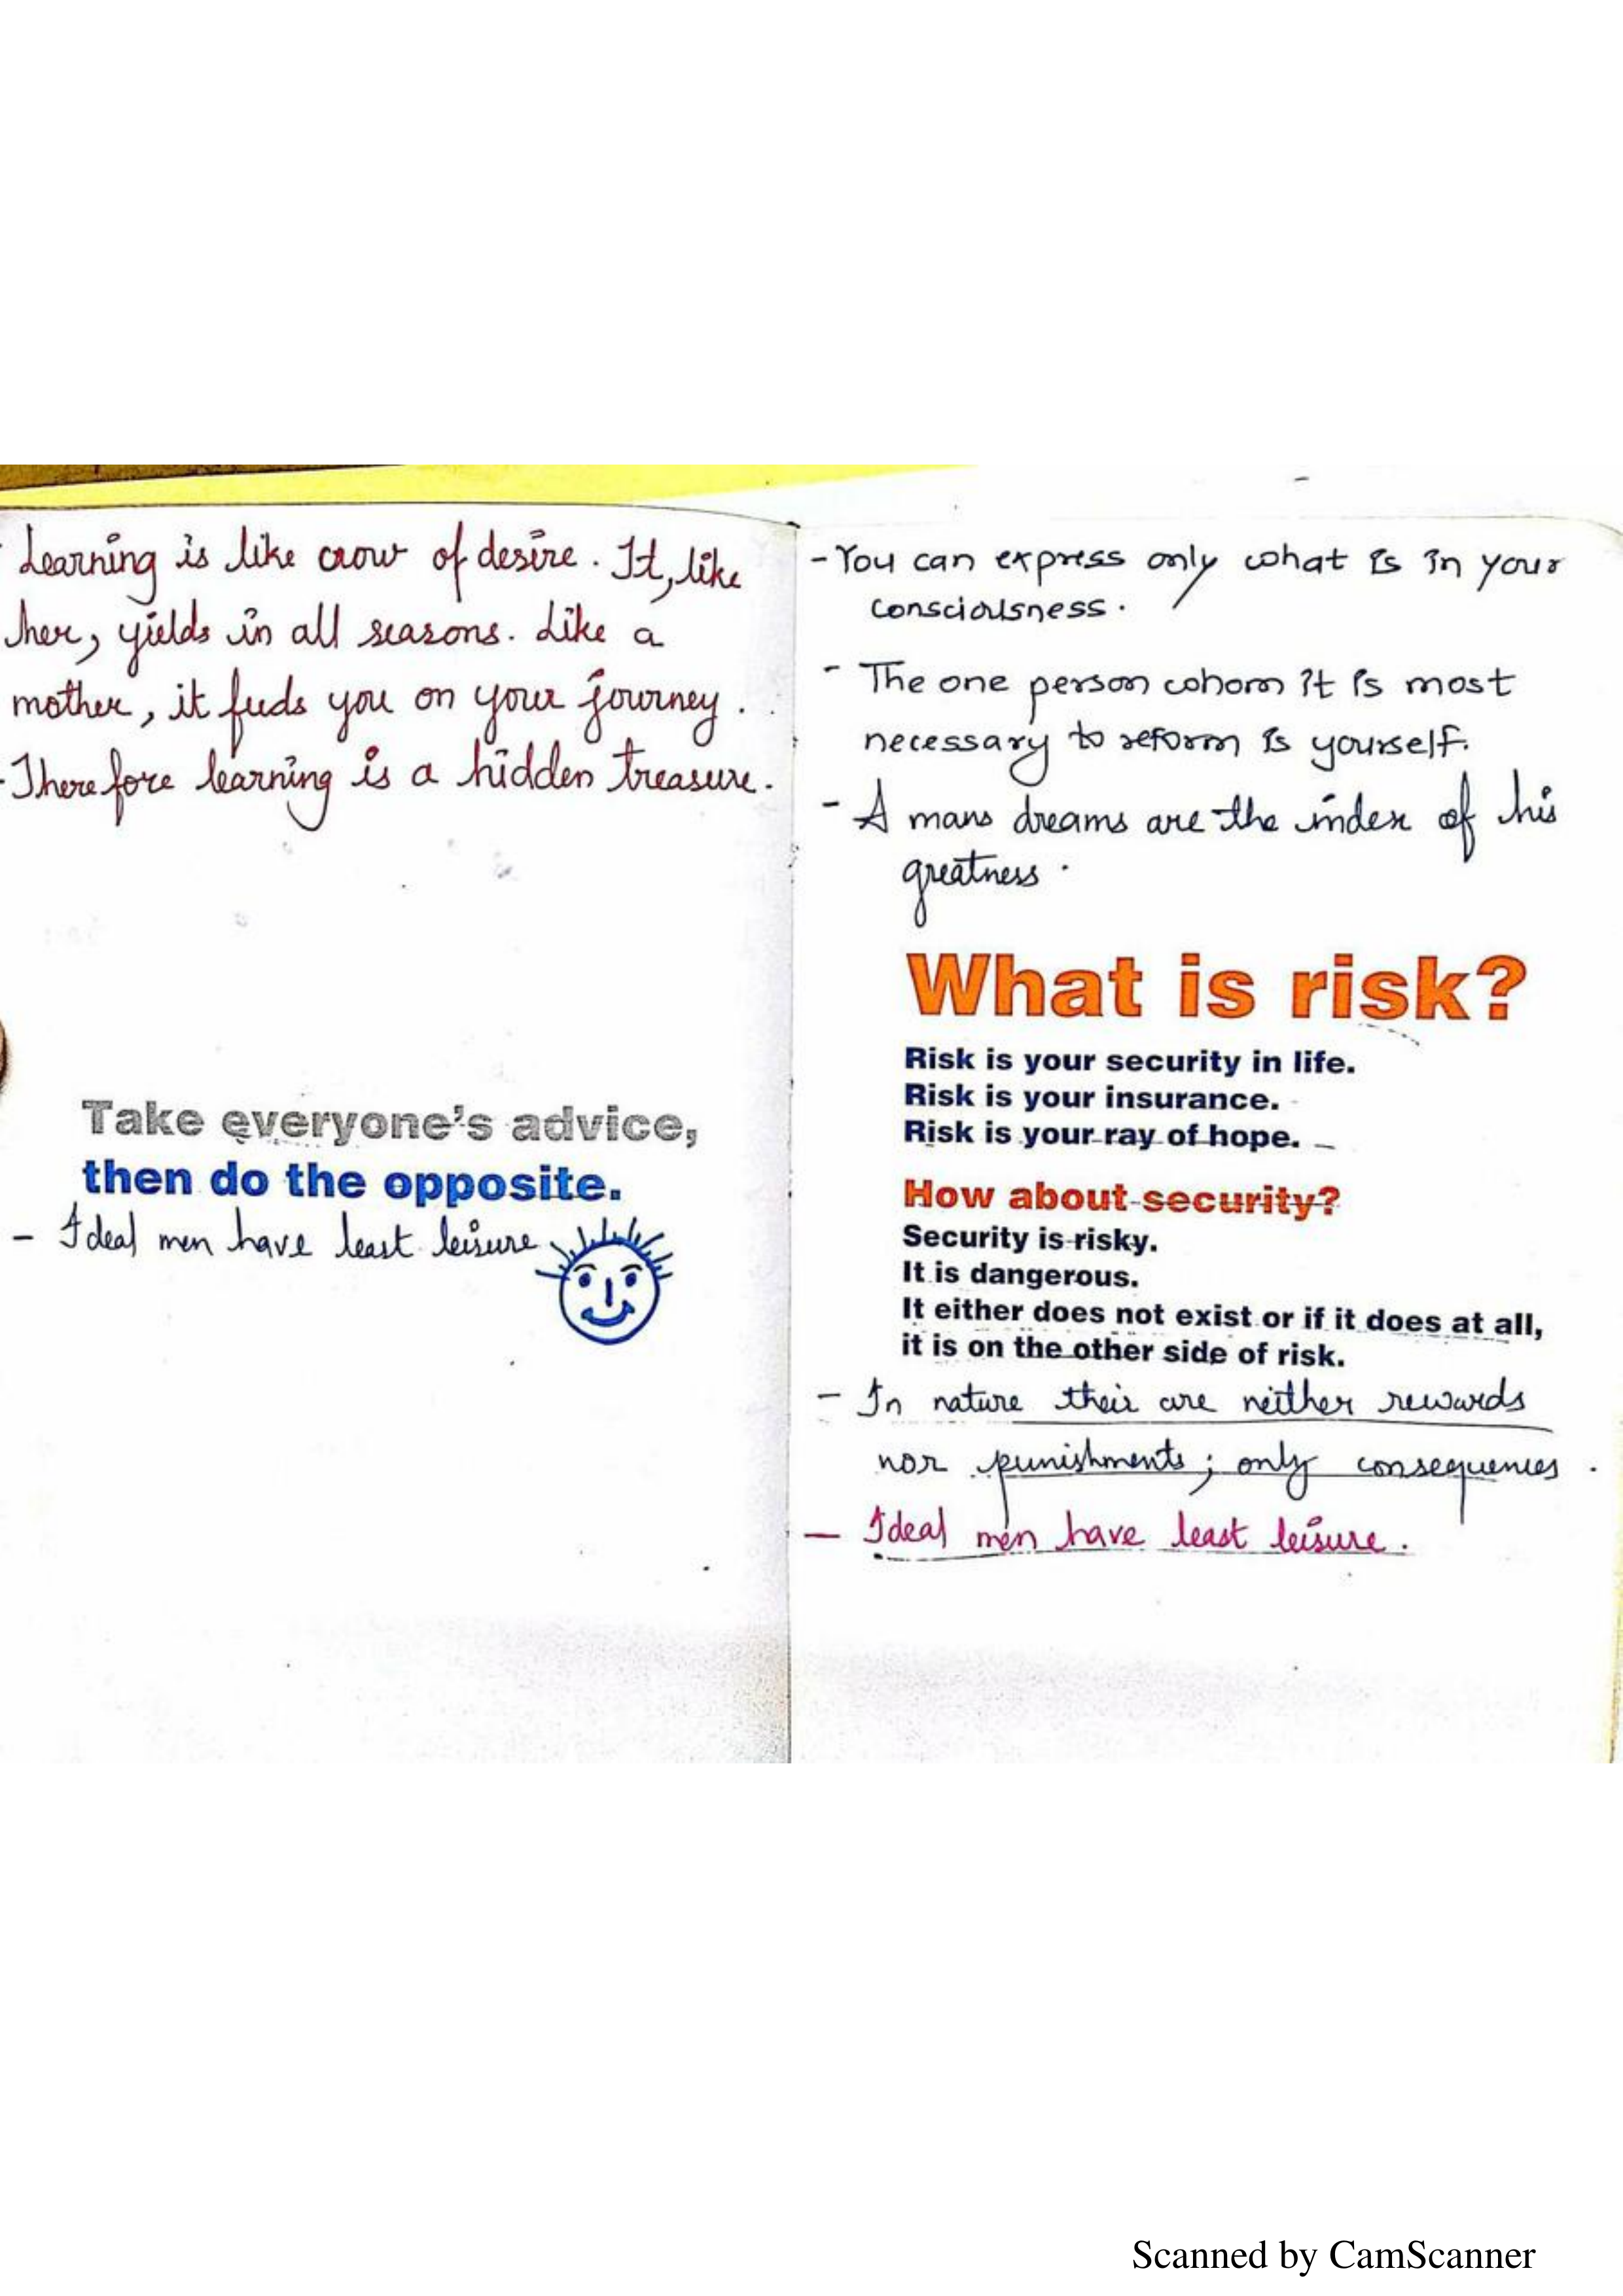 - Learning is like crow of desire. It, like
her, yields in all seasons. Like a
mother, it feeds you on your journey.
- Therefore learning is a hidden treasure.
Take everyone's advice,
then do the opposite.
- Ideal men have least leisure
- You can express only what is in your
consciousness.
- The one person whom it is most
necessary to reform is yourself.
- A mans dreams are the index of his
greatness.
What is risk?
Risk is your security in life.
Risk is your insurance.
Risk is your ray of hope.
How about security?
Security is risky.
It is dangerous.
It either does not exist or if it does at all,
it is on the other side of risk.
- In nature their are neither rewards
nor punishments; only consequences.
- Ideal men have least leisure.
Scanned by CamScanner